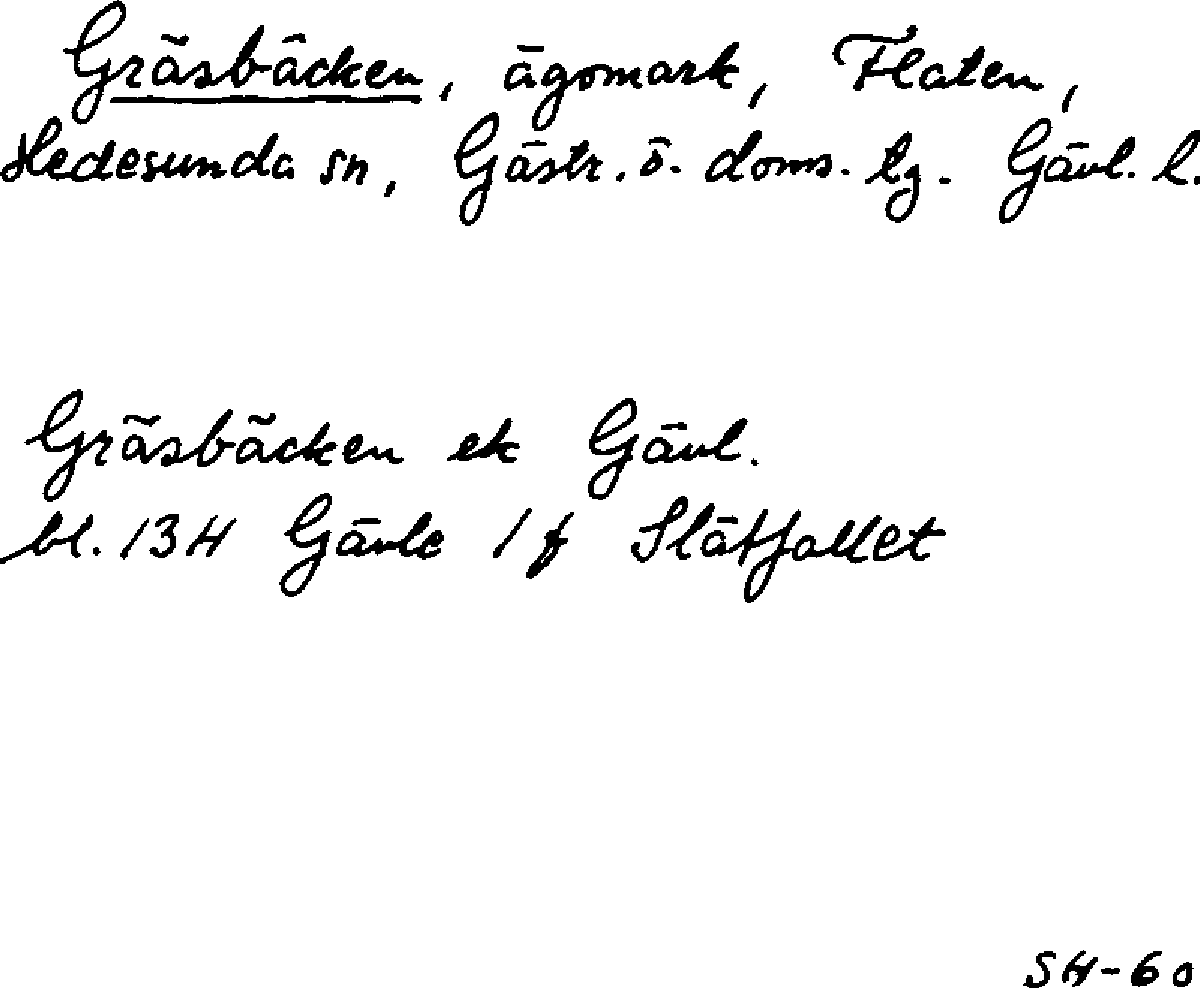 Gräsbäcken, ägomark, Flaten,
Hedesunda sn, Gästr. ö. doms. tg. Gävl. l.
Gräsbäcken ek Gävl.
bl. 13H Gävle 1 f Slätfallet
SH-60